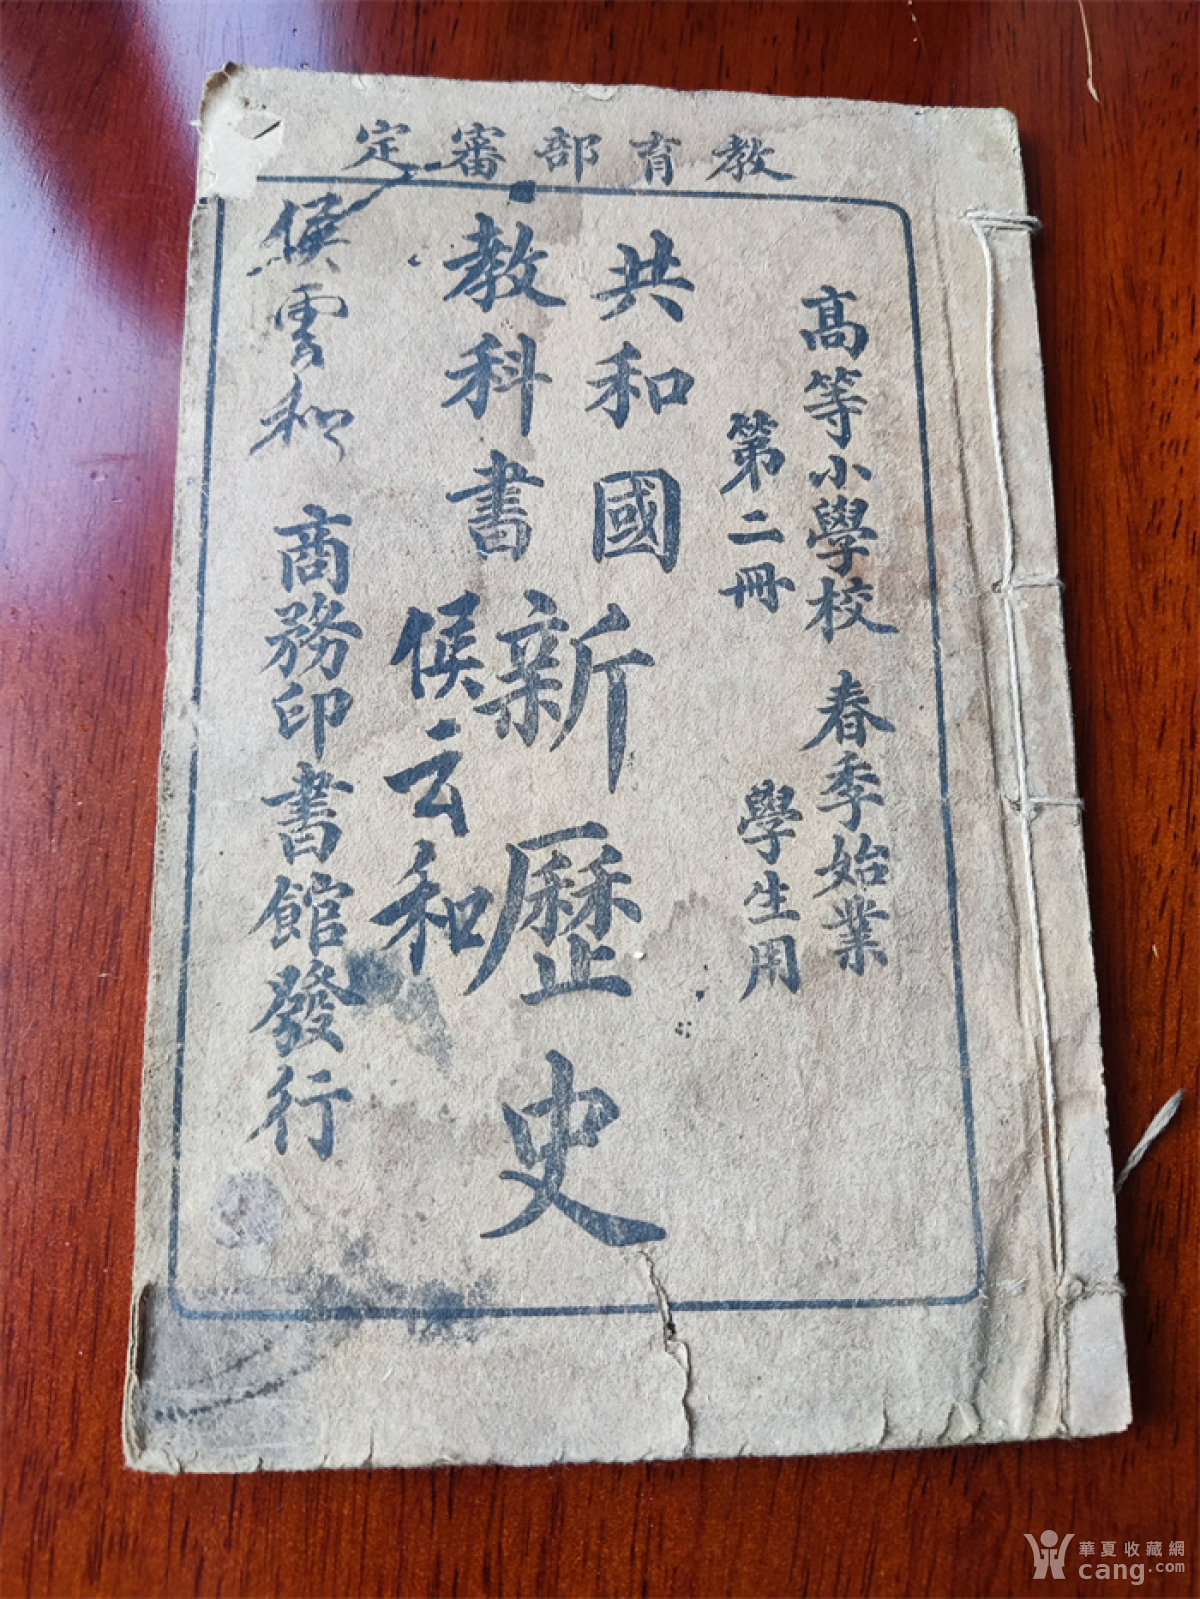 教育部審定
高等小學校 春季始業
第二冊 學生用
共和國
教科書
新歷史
侯云和
侯雲和
商務印書館發行
華夏收藏網
cang.com